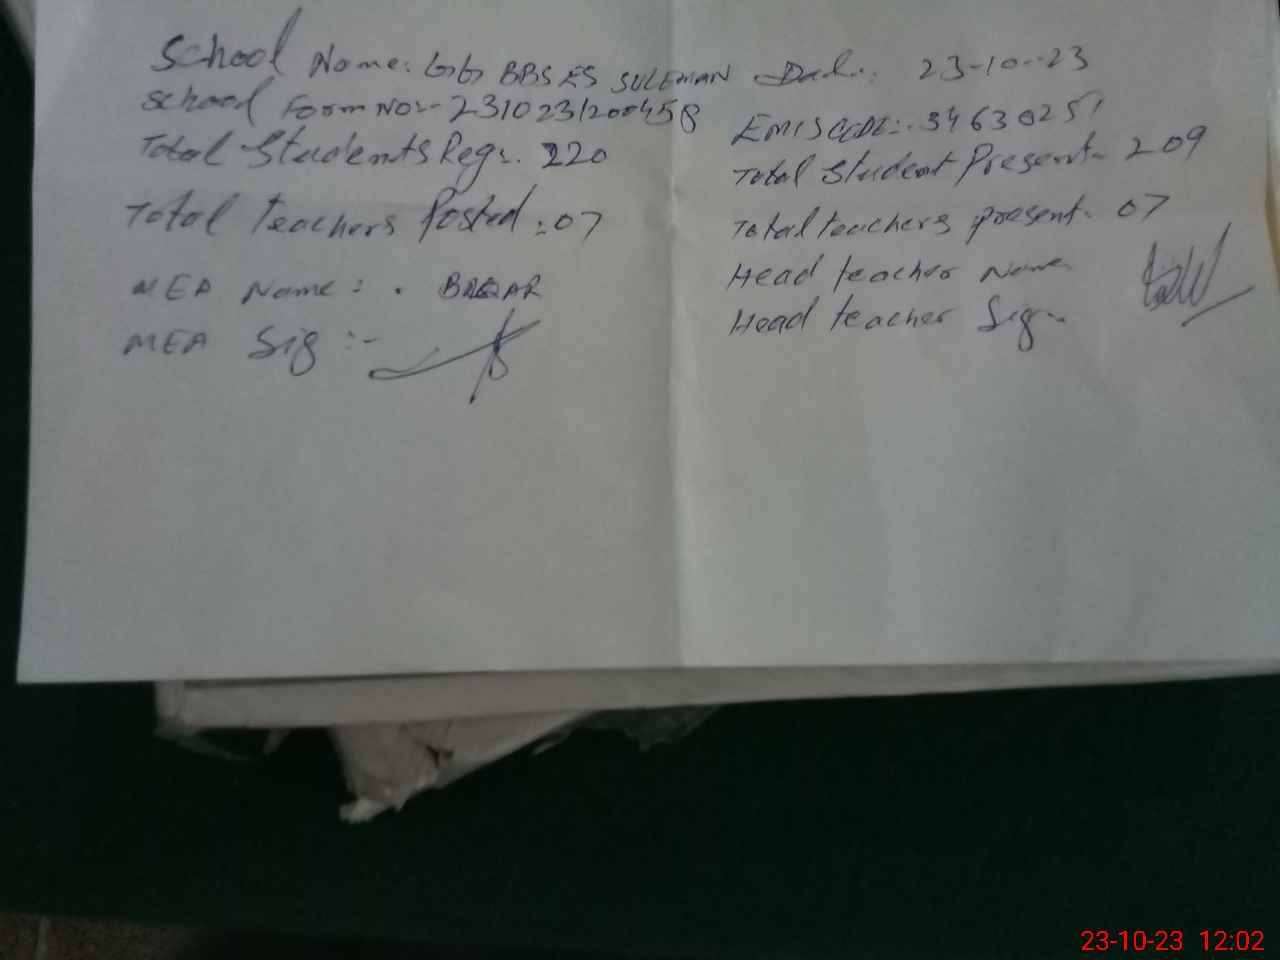 School Name: GG BBS ES SULEMAN Dat.: 23-10-23
School Form No:- 2310231200458 EMIS CODE:. 34630251
Total Students Reg:. 220 Total Student Present- 209
Total teachers Posted:07 Total teachers present- 07
MEA Name: . BAQAR Head teacher Name
MEA Sig:- Head teacher Sig-
23-10-23 12:02